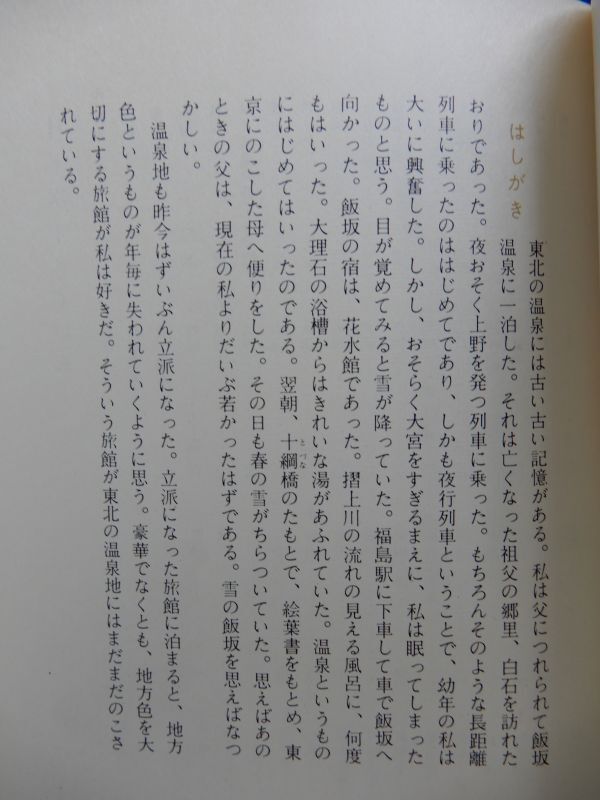 はしがき
東北の温泉には古い古い記憶がある。私は父につれられて飯坂
温泉に一泊した。それは亡くなった祖父の郷里、白石を訪れた
おりであった。夜おそく上野を発つ列車に乗った。もちろんそのような長距離
列車に乗ったのははじめてであり、しかも夜行列車ということで、幼年の私は
大いに興奮した。しかし、おそらく大宮をすぎるまえに、私は眠ってしまった
ものと思う。目が覚めてみると雪が降っていた。福島駅に下車して車で飯坂へ
向かった。飯坂の宿は、花水館であった。摺上川の流れの見える風呂に、何度
もはいった。大理石の浴槽からはきれいな湯があふれていた。温泉というもの
にはじめてはいったのである。翌朝、十綱橋のたもとで、絵葉書をもとめ、東
とづな
京にのこした母へ便りをした。その日も春の雪がちらついていた。思えばあの
ときの父は、現在の私よりだいぶ若かったはずである。雪の飯坂を思えばなつ
かしい。
温泉地も昨今はずいぶん立派になった。立派になった旅館に泊まると、地方
色というものが年毎に失われていくように思う。豪華でなくとも、地方色を大
切にする旅館が私は好きだ。そういう旅館が東北の温泉地にはまだまだのこさ
れている。